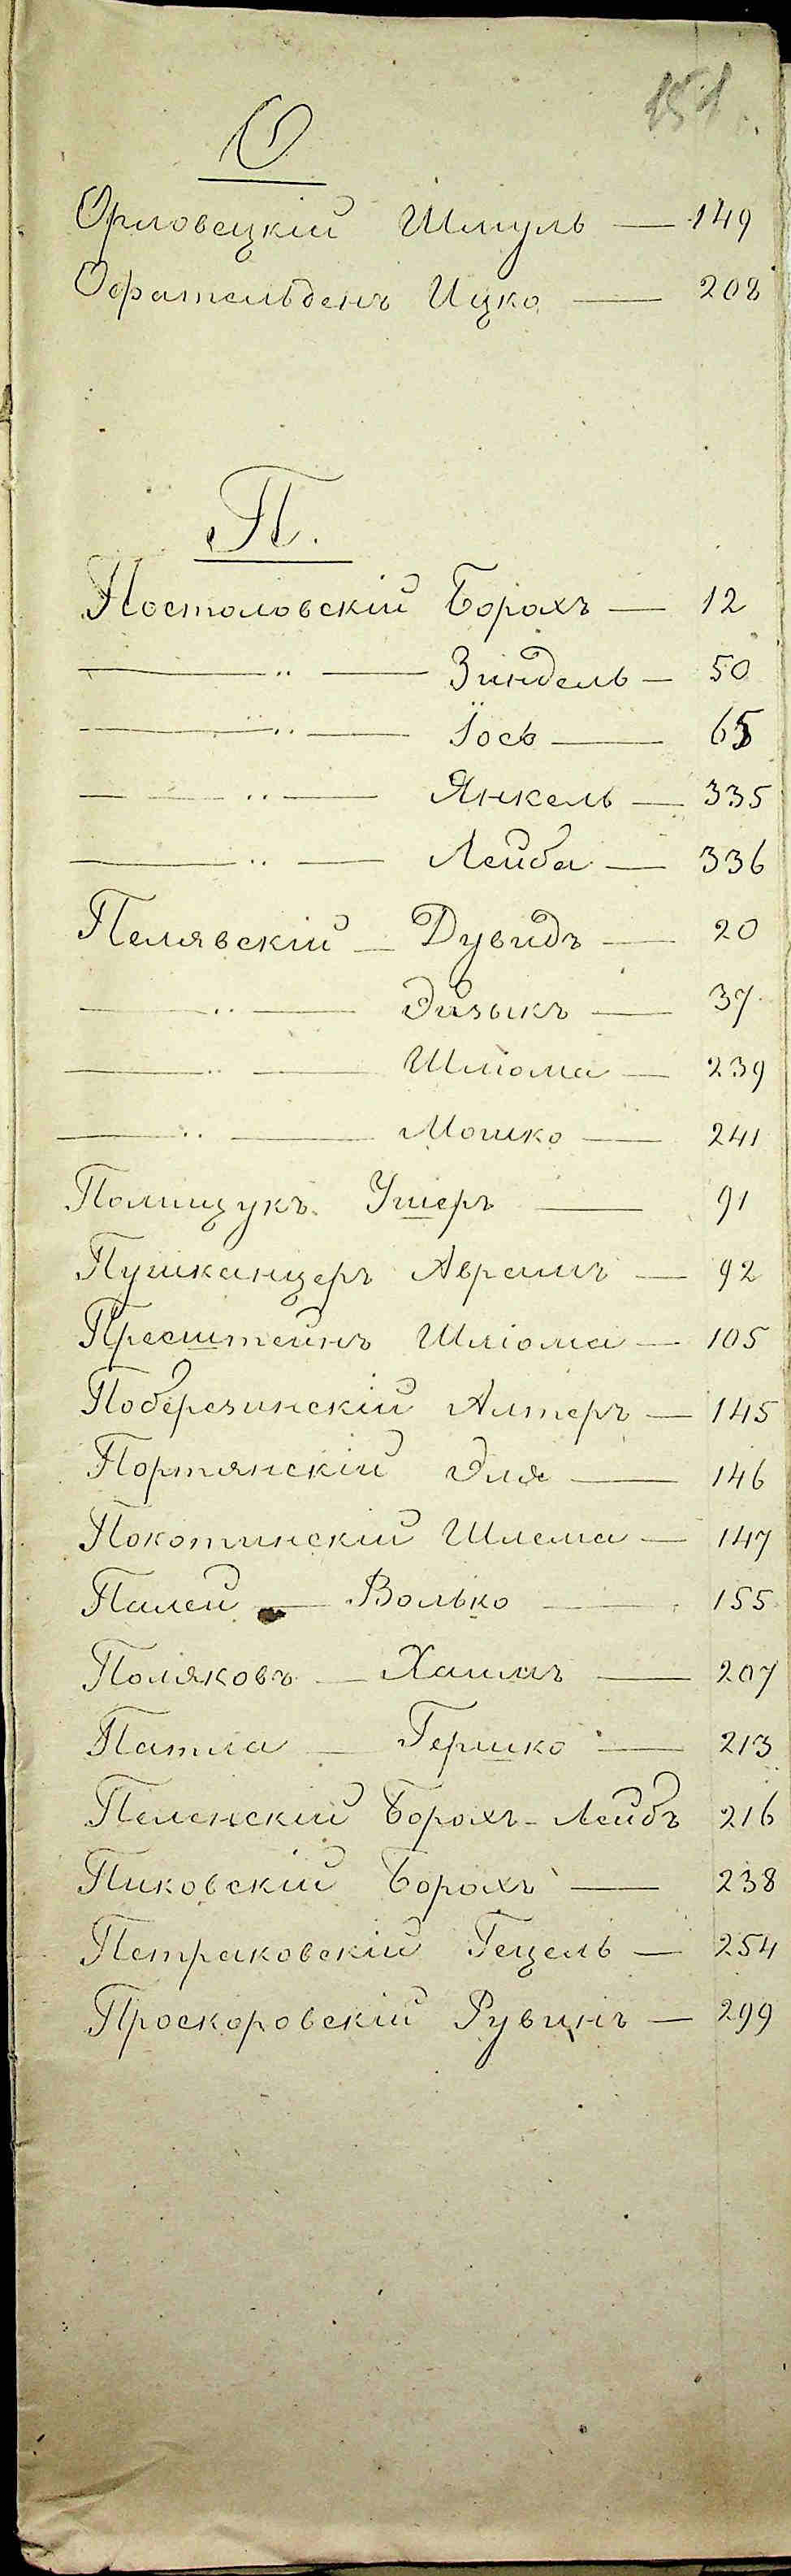 151
О
Орловецкій Шмуль — 149
Офательденъ Ицко — 208
П.
Постоловскій Борохъ — 12
— " — Зиндель — 50
— " — Іось — 65
— " — Янкель — 335
— " — Лейба — 336
Пелявскій — Дувидъ — 20
— " — Эйзыкъ — 37
— " — Шліома — 239
— " — Мошко — 241
Полищукъ Ушеръ — 91
Пушканцеръ Аврамъ — 92
Пресштейнъ Шліома — 105
Поберезинскій Алтеръ — 145
Портянскій Эля — 146
Покотинскій Шлема — 147
Палей — Волько — 155
Поляковъ — Хаимъ — 207
Патла — Гершко — 213
Пеленскій Борохъ-Лейбъ 216
Пиковскій Борохъ — 238
Петраковскій Гецель — 254
Проскоровскій Рувинъ — 299